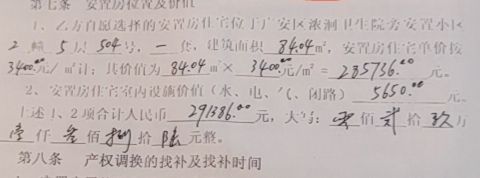 第七条 安置房位置及价值
1、乙方自愿选择的安置房住宅位于广安区浓洄卫生院旁安置小区
2 幢 5 层 504 号,一 套,建筑面积 84.04 m²,安置房住宅单价按
3400.00 元/㎡计;其价值为 84.04 m²× 3400.00 元/m²= 285736.00 元。
2、安置房住宅室内设施价值(水、电、气、闭路) 5650.00 元。
上述1、2项合计人民币 291386.00 元,大写: 零 佰 贰 拾 玖 万
壹 仟 叁 佰 捌 拾 陆 元整。
第八条 产权调换的找补及找补时间